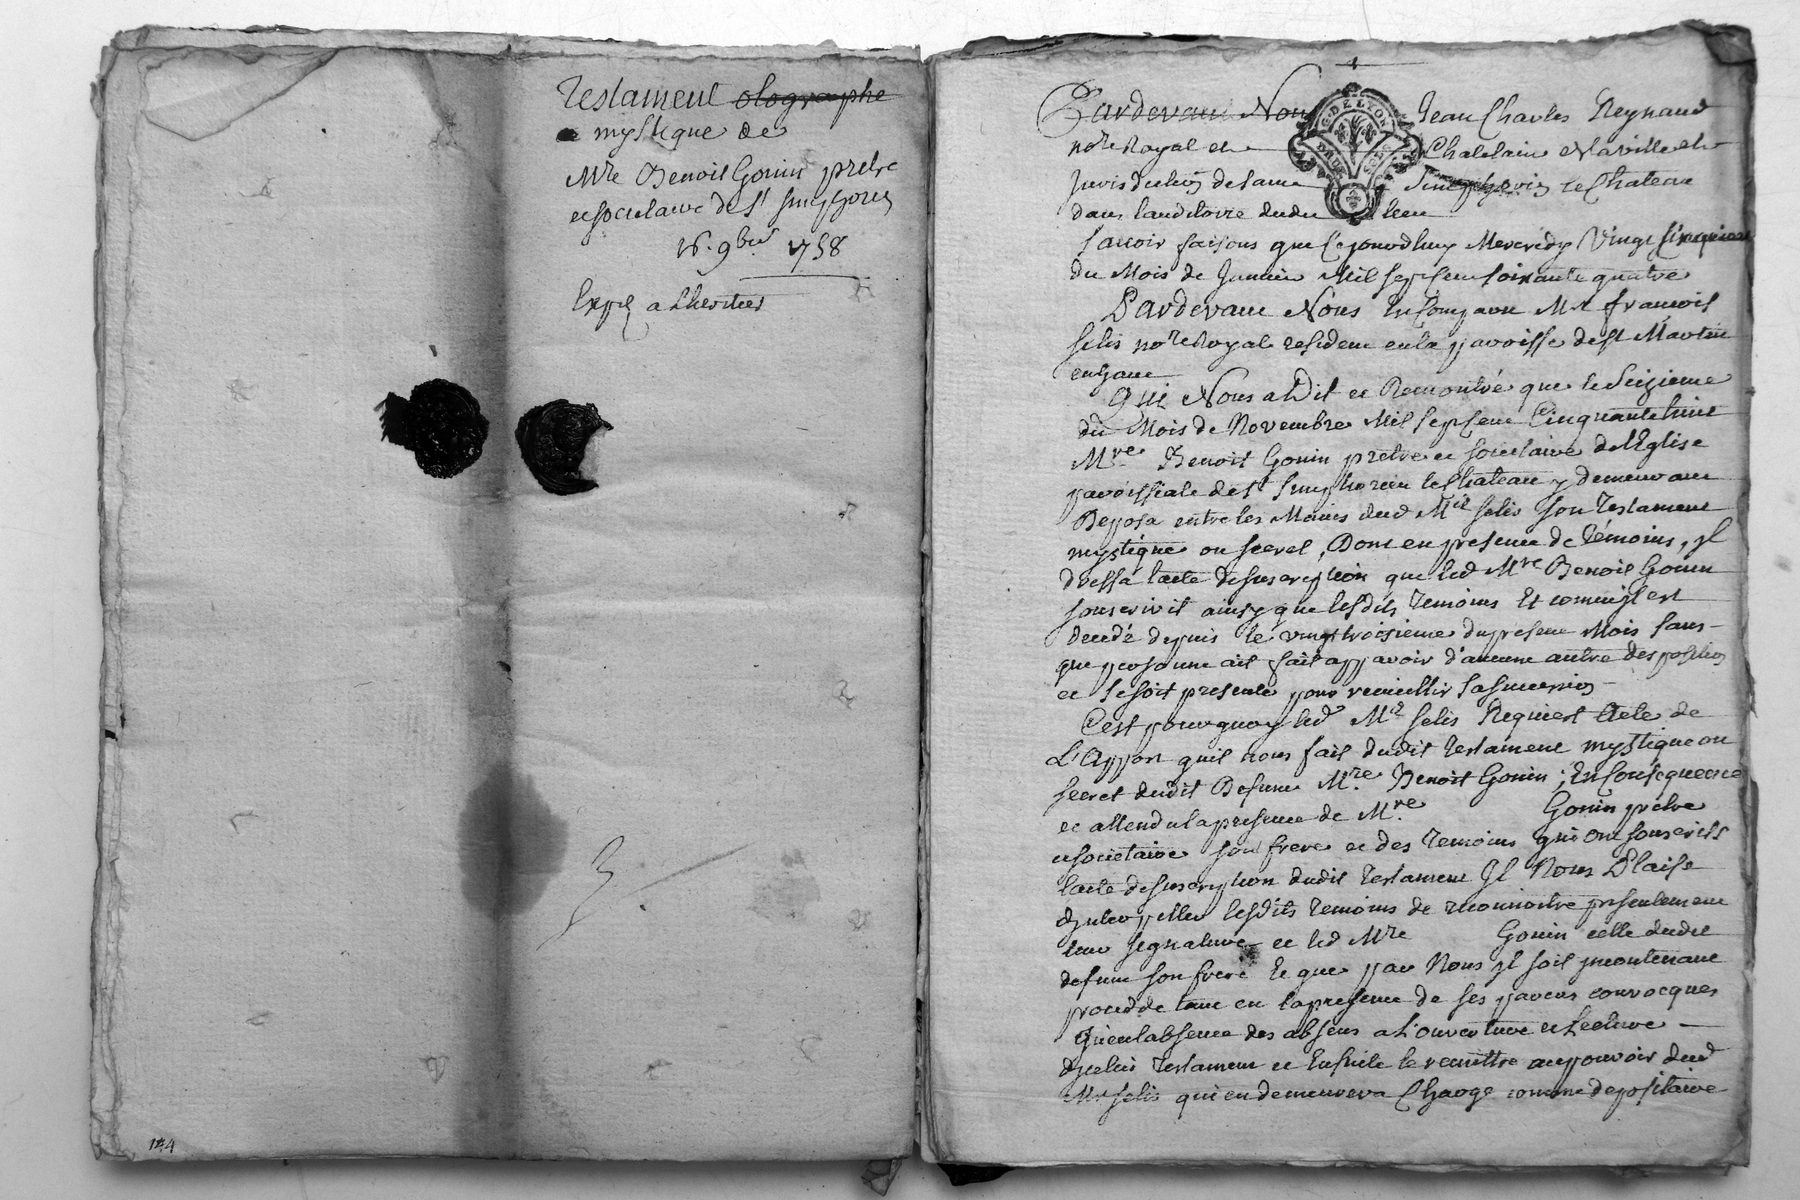 Testament olographe
mystique de
Mre Benoit Gonin pretre
et societaire de St Simphorien
16. 9bre 1758
Expé a Lheritier
144
G. DE LYON
Pardevant Nous Jean Charles Reynaud
nore Royal et Chatelain de la ville et
Jurisdiction de Simphorien le Chateau
dans lauditoire dudit lieu
scavoir faisons que Cejourdhuy Mercredy Vingt Cinquieme
du Mois de Janvier Mil sept cent soixante quatre
Pardevant Nous En Comparu Me françois
selis nore Royal resident en la paroisse de St Martin
enhaut
Qui Nous a Dit et Remontré que le Seizieme
du Mois de Novembre Mil sept cent Cinquante huit
Mre Benoit Gonin pretre et societaire de lEglise
paroissiale de St Simphorien le Chateau y demeurant
Deposa entre les Mains dud Me selis son Testament
mystique ou secret, Dont en presence de Témoins, jl
dressa lacte desuscription que led Mre Benoit Gonin
souscrivit ainsy que lesdits temoins Et comme jl est
decedé depuis le vingt troisieme du present Mois sans
que personne ait fait apparoir d'aucune autre disposition
et se soit presenté pour recueillir sa succession
C'est pourquoy led Me selis Requiert Acte de
L'Apport quil nous fait dudit Testament mystique ou
secret dudit Defunt Mre Benoit Gonin ; En Consequence
et attendu la presence de Mre Gonin pretre
et societaire son frere et des temoins qui ont souscrits
lacte desuscription dudit Testament Jl Nous Plaise
dinterpeller lesdits temoins de reconnoitre presentement
leur signature et led Mre Gonin celle dudit
defunt son frere Et que par Nous jl soit jncontinant
procedé tant en la presence de ses parens convocques
qu'en labsence des absens a L'ouverture et Lecture
dicelui Testament et Ensuite le remettre au pouvoir dud
Me selis qui en demeurera Chargé comme depositaire